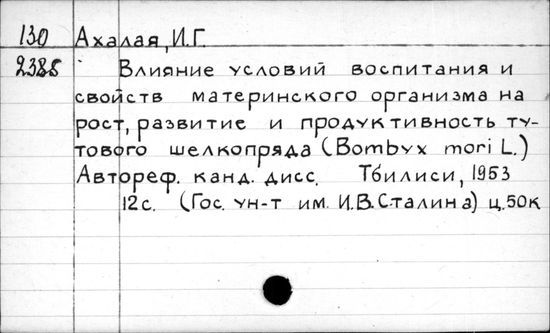 130 Ахалая, И.Г.
2385 Влияние условий воспитания и
свойств материнского организма на
рост, развитие и продуктивность ту-
тового шелкопряда (Bombyx mori L.)
Автореф. канд. дисс. Тбилиси, 1953
12с. (Гос. ун-т им. И.В. Сталина) ц. 50к